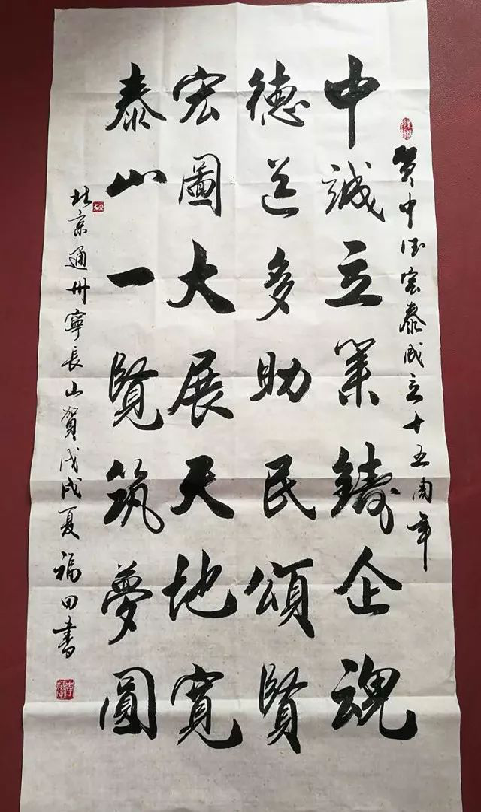 贺中德宏泰成立十五周年
中诚立業鑄企魂
德道多助民頌賢
宏圖大展天地寬
泰山一覽筑夢圓
北京通州寧長山賀戊戌夏福田書